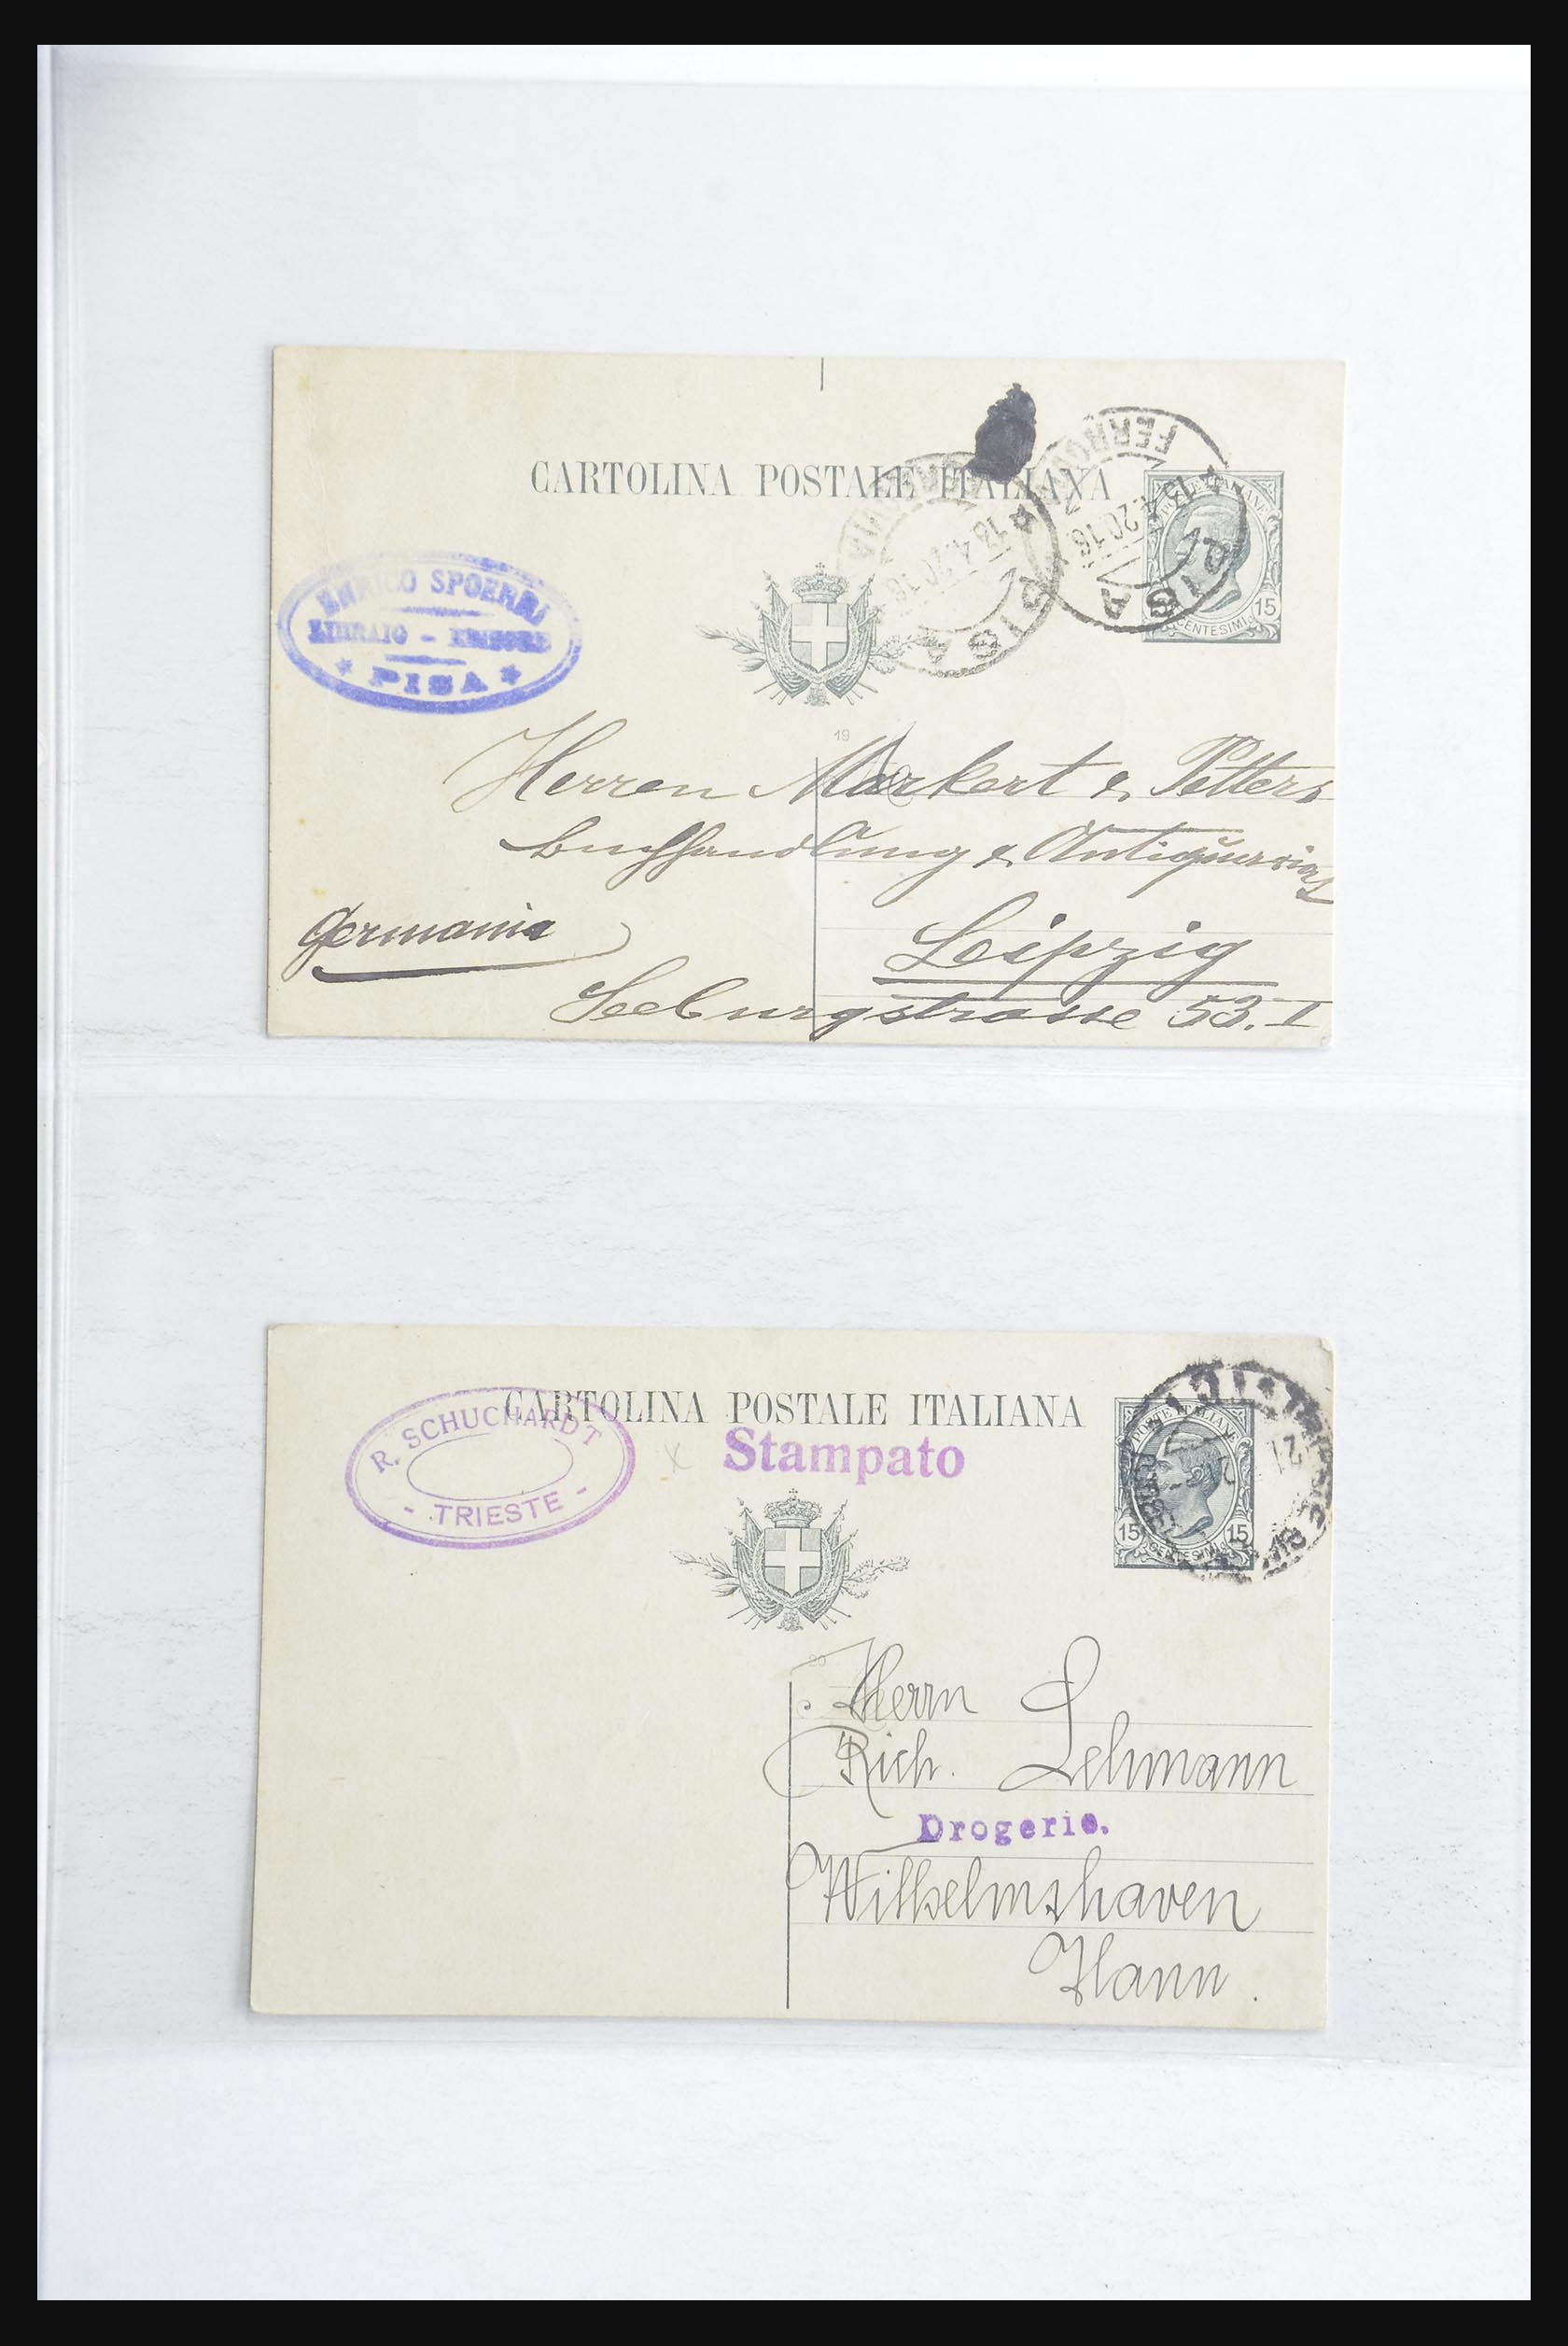 CARTOLINA POSTALE ITALIANA
FERROVIA
PISA
13 4.20.16
FERROVIA
PISA
POSTE ITALIANE
15
CENTESIMI
ENRICO SPOERRI
LIBRAIO - EDITORE
* PISA *
19
Herren Markert & Petters
Buchhandlung & Antiquariat
Germania
Leipzig
Seeburgstrasse 53. I
CARTOLINA POSTALE ITALIANA
R. SCHUCHARDT
- TRIESTE -
Stampato
POSTE ITALIANE
15 15
CENTESIMI
21
20
Herrn
Rich. Lehmann
Drogerie.
Wilhelmshaven
Hann.